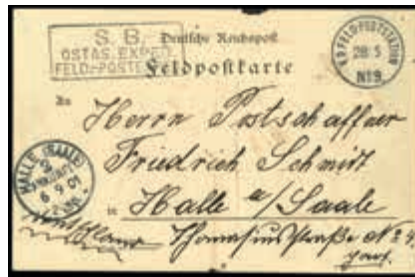 S. B.
OSTAS. EXPED.
FELD-POSTE
Deutsche Reichspost
Feldpostkarte
K.D. FELD-POSTSTATION
28 5
No 9.
An
Herrn Postschaffner
Friedrich Schmidt
in Halle a/Saale
Thomasiusstraße No 4
HALLE (SAALE)
6 9 01
Deutschland